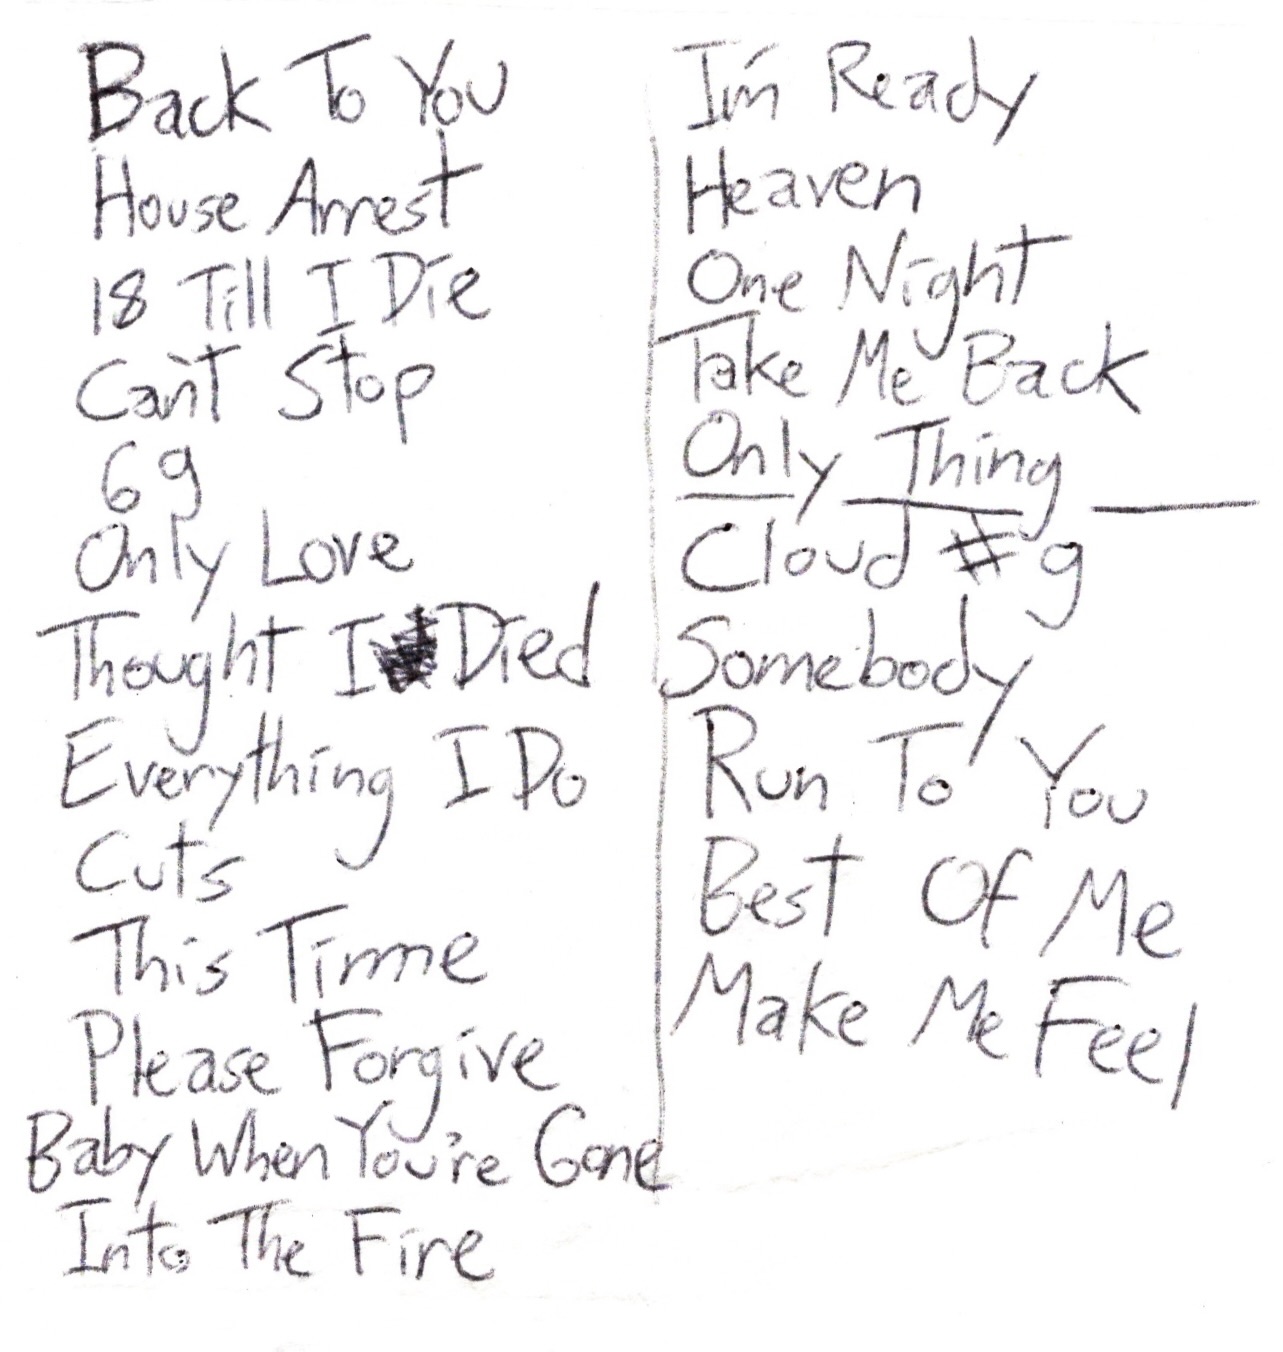 Back To You
House Arrest
18 Till I Die
Can't Stop
69
Only Love
Thought I Died
Everything I Do
Cuts
This Time
Please Forgive
Baby When You're Gone
Into The Fire
I'm Ready
Heaven
One Night
Take Me Back
Only Thing
Cloud #9
Somebody
Run To You
Best Of Me
Make Me Feel